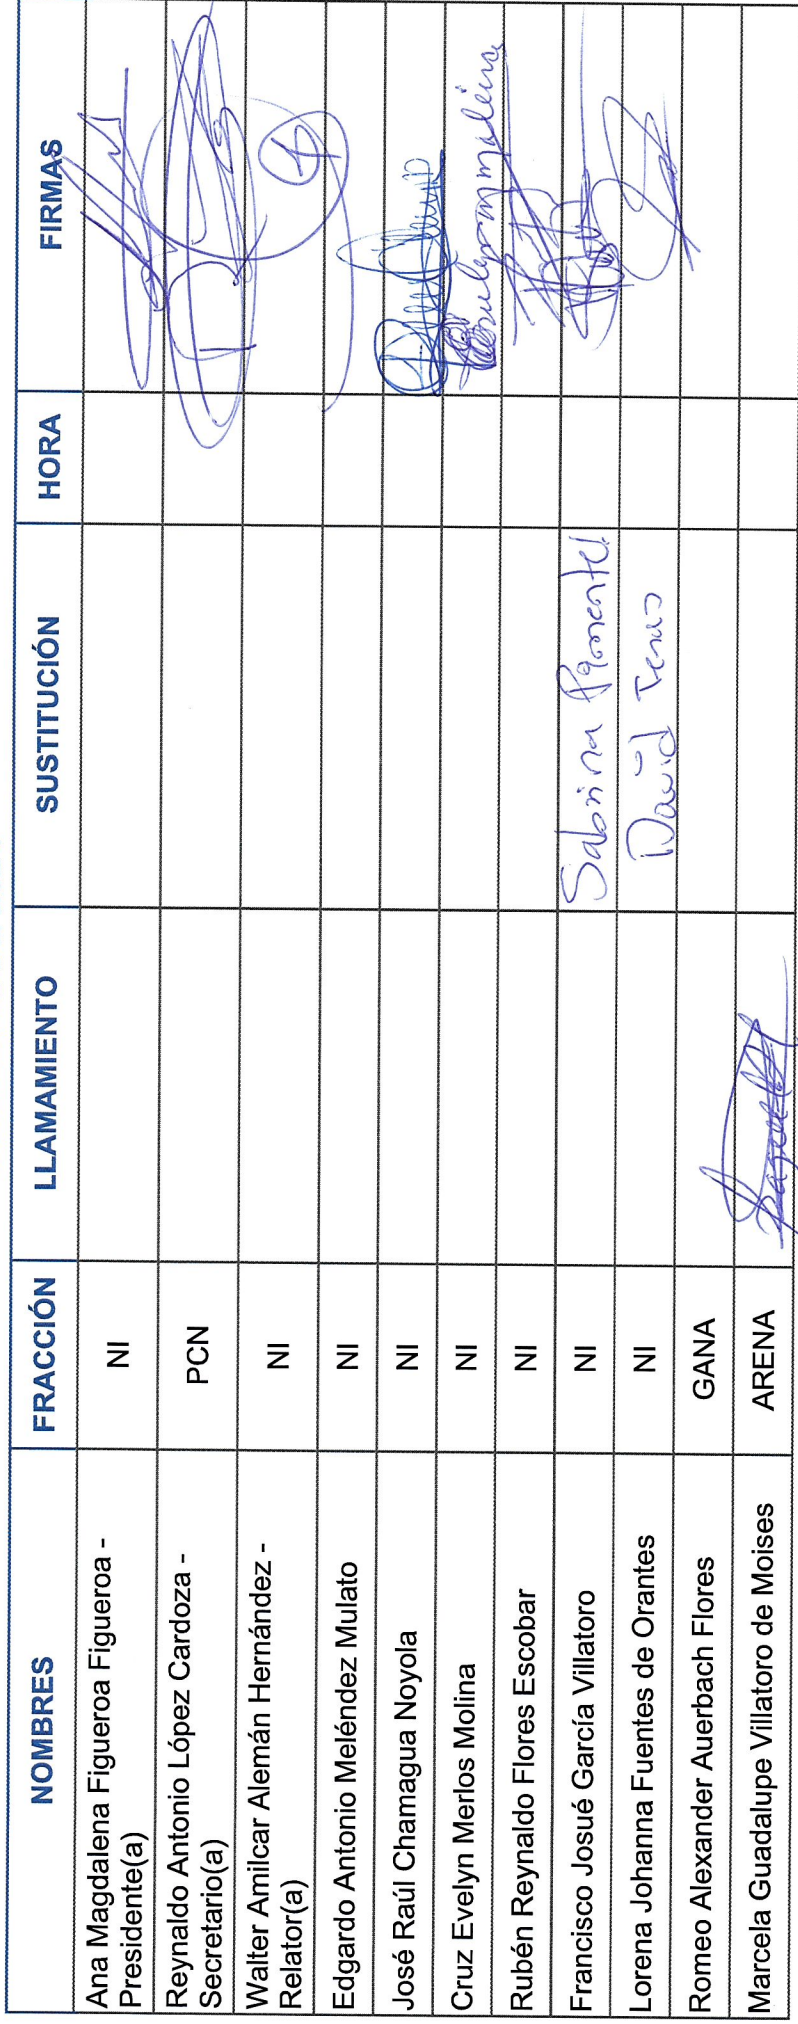 NOMBRES FRACCIÓN LLAMAMIENTO SUSTITUCIÓN HORA FIRMAS
Ana Magdalena Figueroa Figueroa -
Presidente(a) NI
Reynaldo Antonio López Cardoza -
Secretario(a) PCN
Walter Amilcar Alemán Hernández -
Relator(a) NI
Edgardo Antonio Meléndez Mulato NI
José Raúl Chamagua Noyola NI
Cruz Evelyn Merlos Molina NI
Rubén Reynaldo Flores Escobar NI
Francisco Josué García Villatoro NI Sabrina
Lorena Johanna Fuentes de Orantes NI David
Romeo Alexander Auerbach Flores GANA
Marcela Guadalupe Villatoro de Moises ARENA